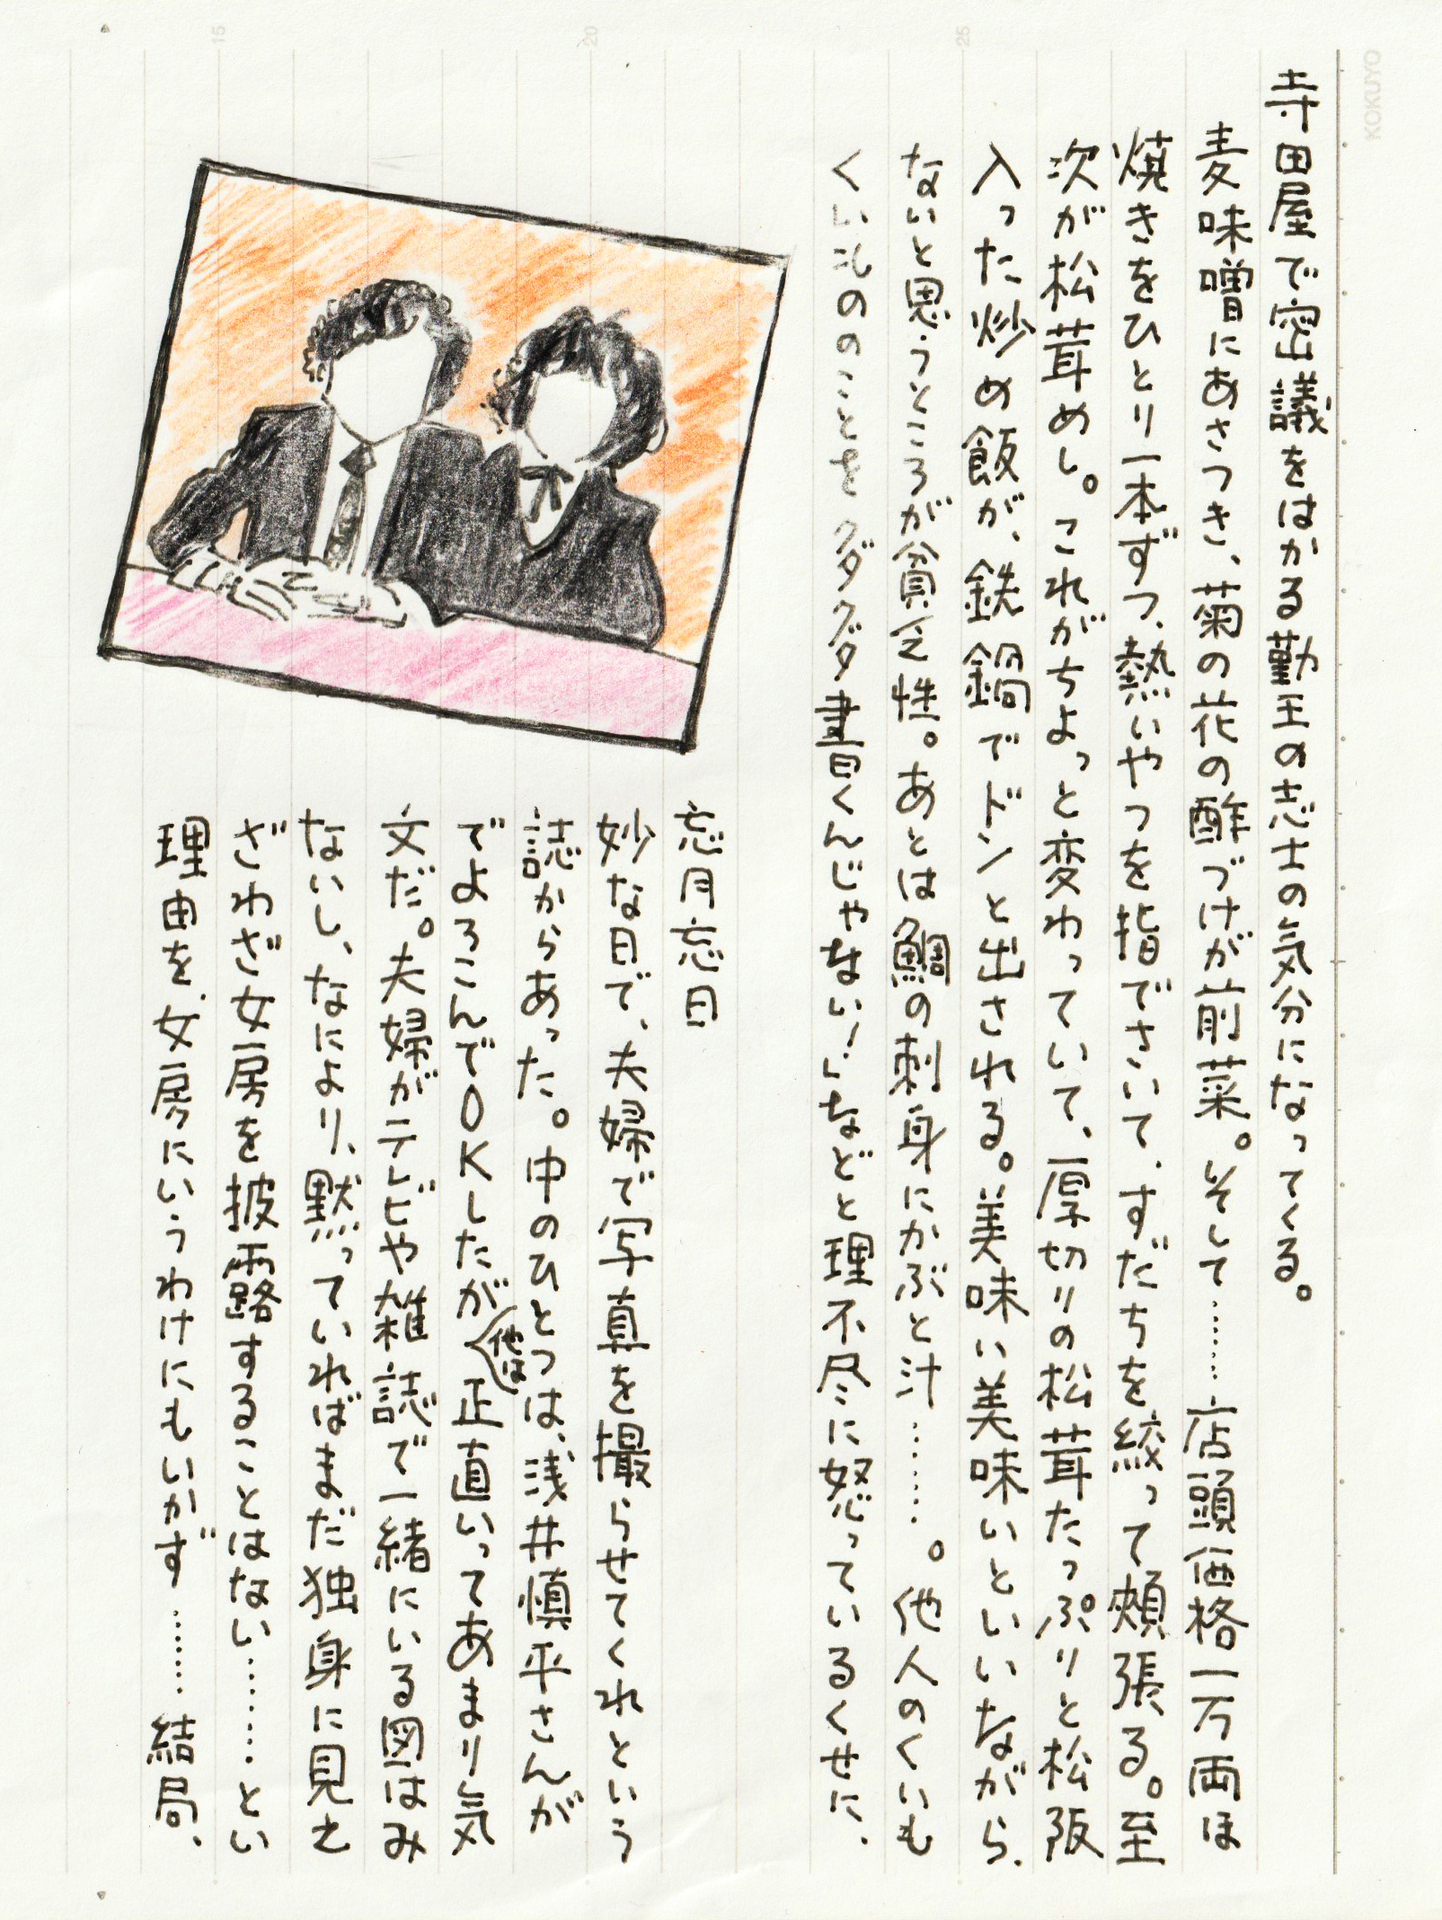 寺田屋で密議をはかる勤王の志士の気分になってくる。
麦味噌にあさつき、菊の花の酢づけが前菜。そして………店頭価格一万両ほ
焼きをひとり一本ずつ、熱いやつを指でさいて、すだちを絞って頬張る。至
次が松茸めし。これがちょっと変わっていて、厚切りの松茸たっぷりと松阪
入った炒め飯が、鉄鍋でドンと出される。美味い美味いといいながら、
ないと思うところが貧乏性。あとは鯛の刺身にかぶと汁………。他人のくいも
くいもののことをグダグダ書くんじゃない!」などと理不尽に怒っているくせに、
忘月忘日
妙な日で、夫婦で写真を撮らせてくれという
誌からあった。中のひとつは、浅井慎平さんが
でよろこんでOKしたが(他は)正直いってあまり気
文だ。夫婦がテレビや雑誌で一緒にいる図はみ
ないし、なにより、黙っていればまだ独身に見え
ざわざ女房を披露することはない………とい
理由を、女房にいうわけにもいかず………結局、
15
20
25
KOKUYO